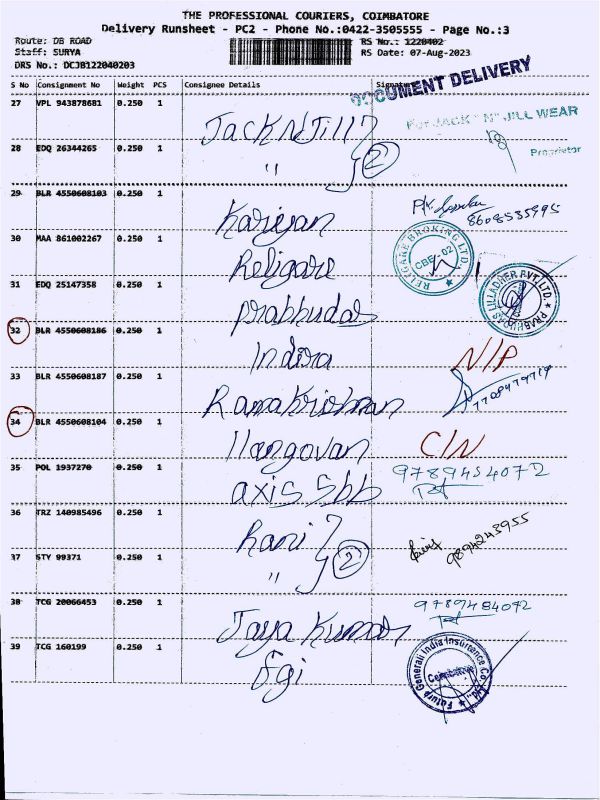 THE PROFESSIONAL COURIERS, COIMBATORE
Delivery Runsheet - PC2 - Phone No.:0422-3505555 - Page No.:3
Route: DB ROAD RS No.: 1220402
Staff: SURYA RS Date: 07-Aug-2023
DRS No.: DCJB122040203
DOCUMENT DELIVERY
S No Consignment No Weight PCS Consignee Details Signature
27 VPL 943878681 0.250 1 Jack N Jill
For JACK " N" JILL WEAR
Proprietor
28 EDQ 26344265 0.250 1 " 2
29 BLR 4550608103 0.250 1 Kariyan 8608535995
30 MAA 861002267 0.250 1 Religare
RELIGARE BROKING LTD. CBE-02
31 EDQ 25147358 0.250 1 Prabhudas
PRABHUDAS LILLADHER PVT. LTD.
32 BLR 4550608186 0.250 1 Indira N/P
33 BLR 4550608187 0.250 1 RamaKrishnan
34 BLR 4550608104 0.250 1 Ilangovan C/N
35 POL 1937270 0.250 1 axis Sbb 9789454072
36 TRZ 140985496 0.250 1 Rani 9894243955
37 STY 99371 0.250 1 " 2
38 TCG 20066453 0.250 1 Jaya Kumar 9789484072
39 TCG 160199 0.250 1 fgi
Future Generali India Insurance Co. Ltd. Coimbatore